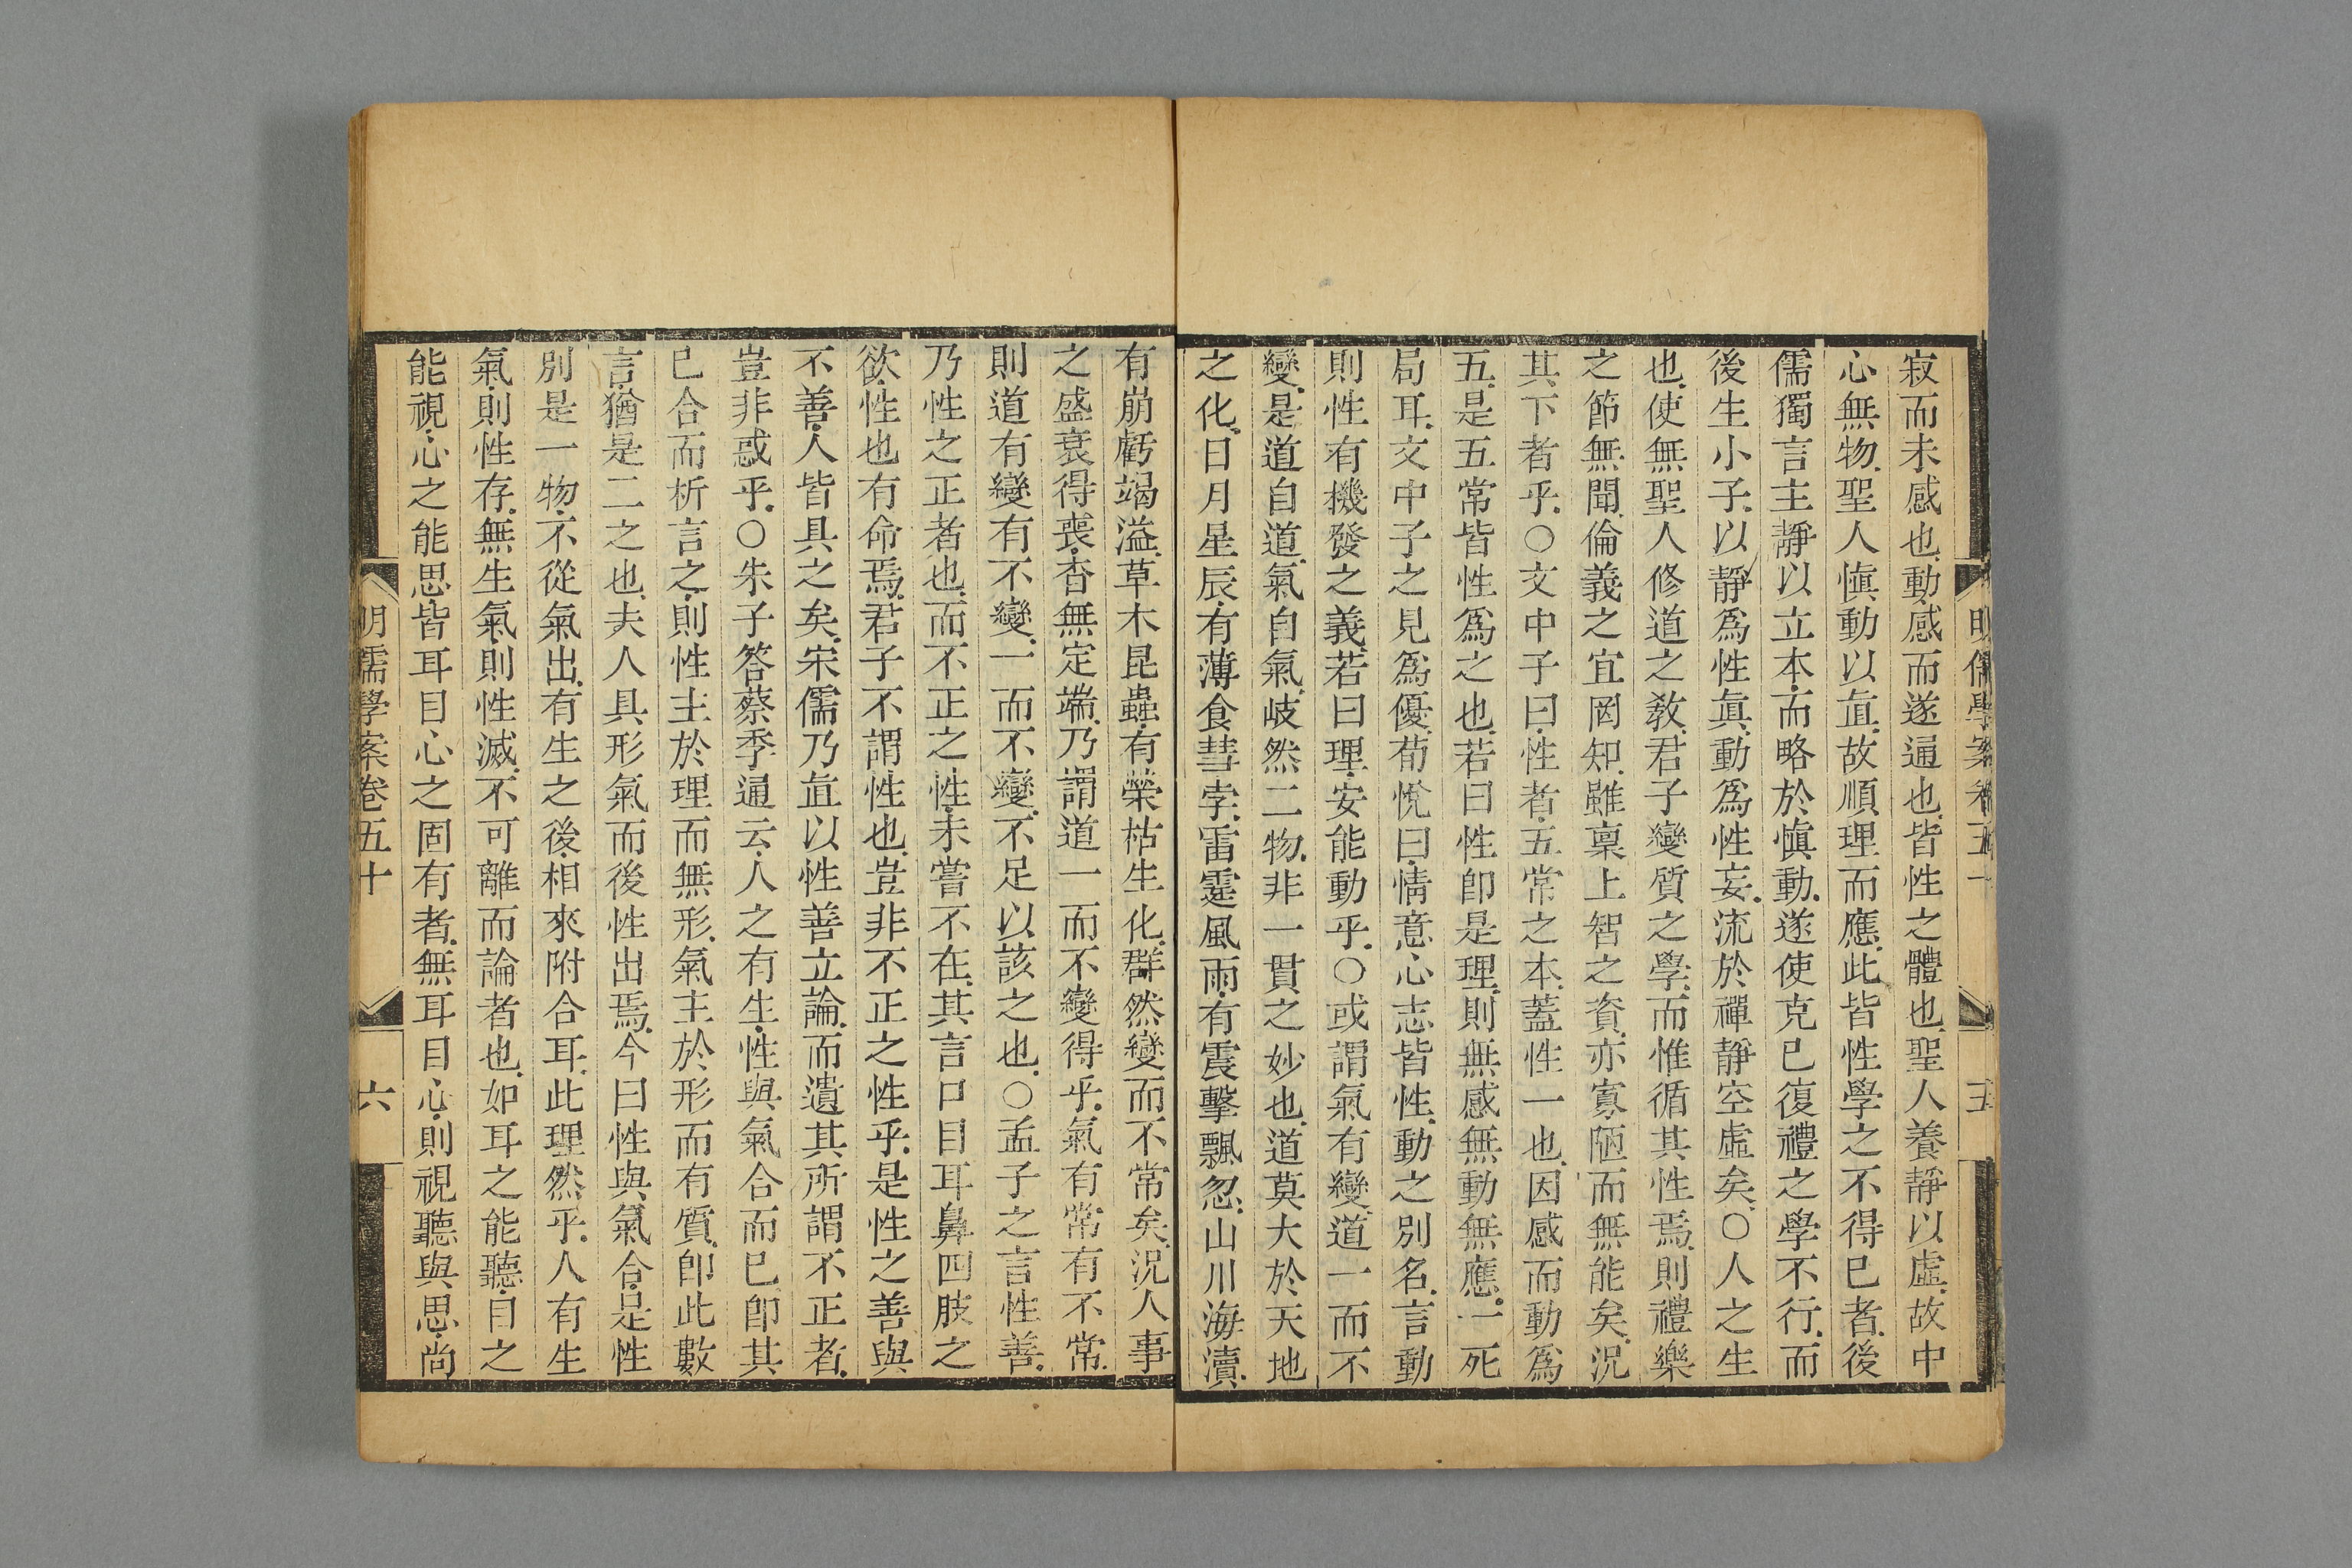 寂而未感也動感而遂通也皆性之體也聖人養靜以虛故中
心無物聖人愼動以直故順理而應此皆性學之不得已者後
儒獨言主靜以立本而略於愼動遂使克已復禮之學不行而
後生小子以靜爲性眞動爲性妄流於禪靜空虛矣○人之生
也使無聖人修道之敎君子變質之學而惟循其性焉則禮樂
之節無聞倫義之宜罔知雖稟上智之資亦寡陋而無能矣況
其下者乎○文中子曰性者五常之本蓋性一也因感而動爲
五是五常皆性爲之也若曰性卽是理則無感無動無應一死
局耳文中子之見爲優荀悅曰情意心志皆性動之別名言動
則性有機發之義若曰理安能動乎○或謂氣有變道一而不
變是道自道氣自氣岐然二物非一貫之妙也道莫大於天地
之化日月星辰有薄食彗孛雷霆風雨有震擊飄忽山川海瀆
有崩虧竭溢草木昆蟲有榮枯生化群然變而不常矣況人事
之盛衰得喪杳無定端乃謂道一而不變得乎氣有常有不常
則道有變有不變一而不變不足以該之也○孟子之言性善
乃性之正者也而不正之性未嘗不在其言口目耳鼻四肢之
欲性也有命焉君子不謂性也豈非不正之性乎是性之善與
不善人皆具之矣宋儒乃直以性善立論而遺其所謂不正者
豈非惑乎○朱子答蔡季通云人之有生性與氣合而已卽其
已合而析言之則性主於理而無形氣主於形而有質卽此數
言猶是二之也夫人具形氣而後性出焉今曰性與氣合是性
別是一物不從氣出有生之後相來附合耳此理然乎人有生
氣則性存無生氣則性滅不可離而論者也如耳之能聽目之
能視心之能思皆耳目心之固有者無耳目心則視聽與思尚
明儒學案卷五十
六